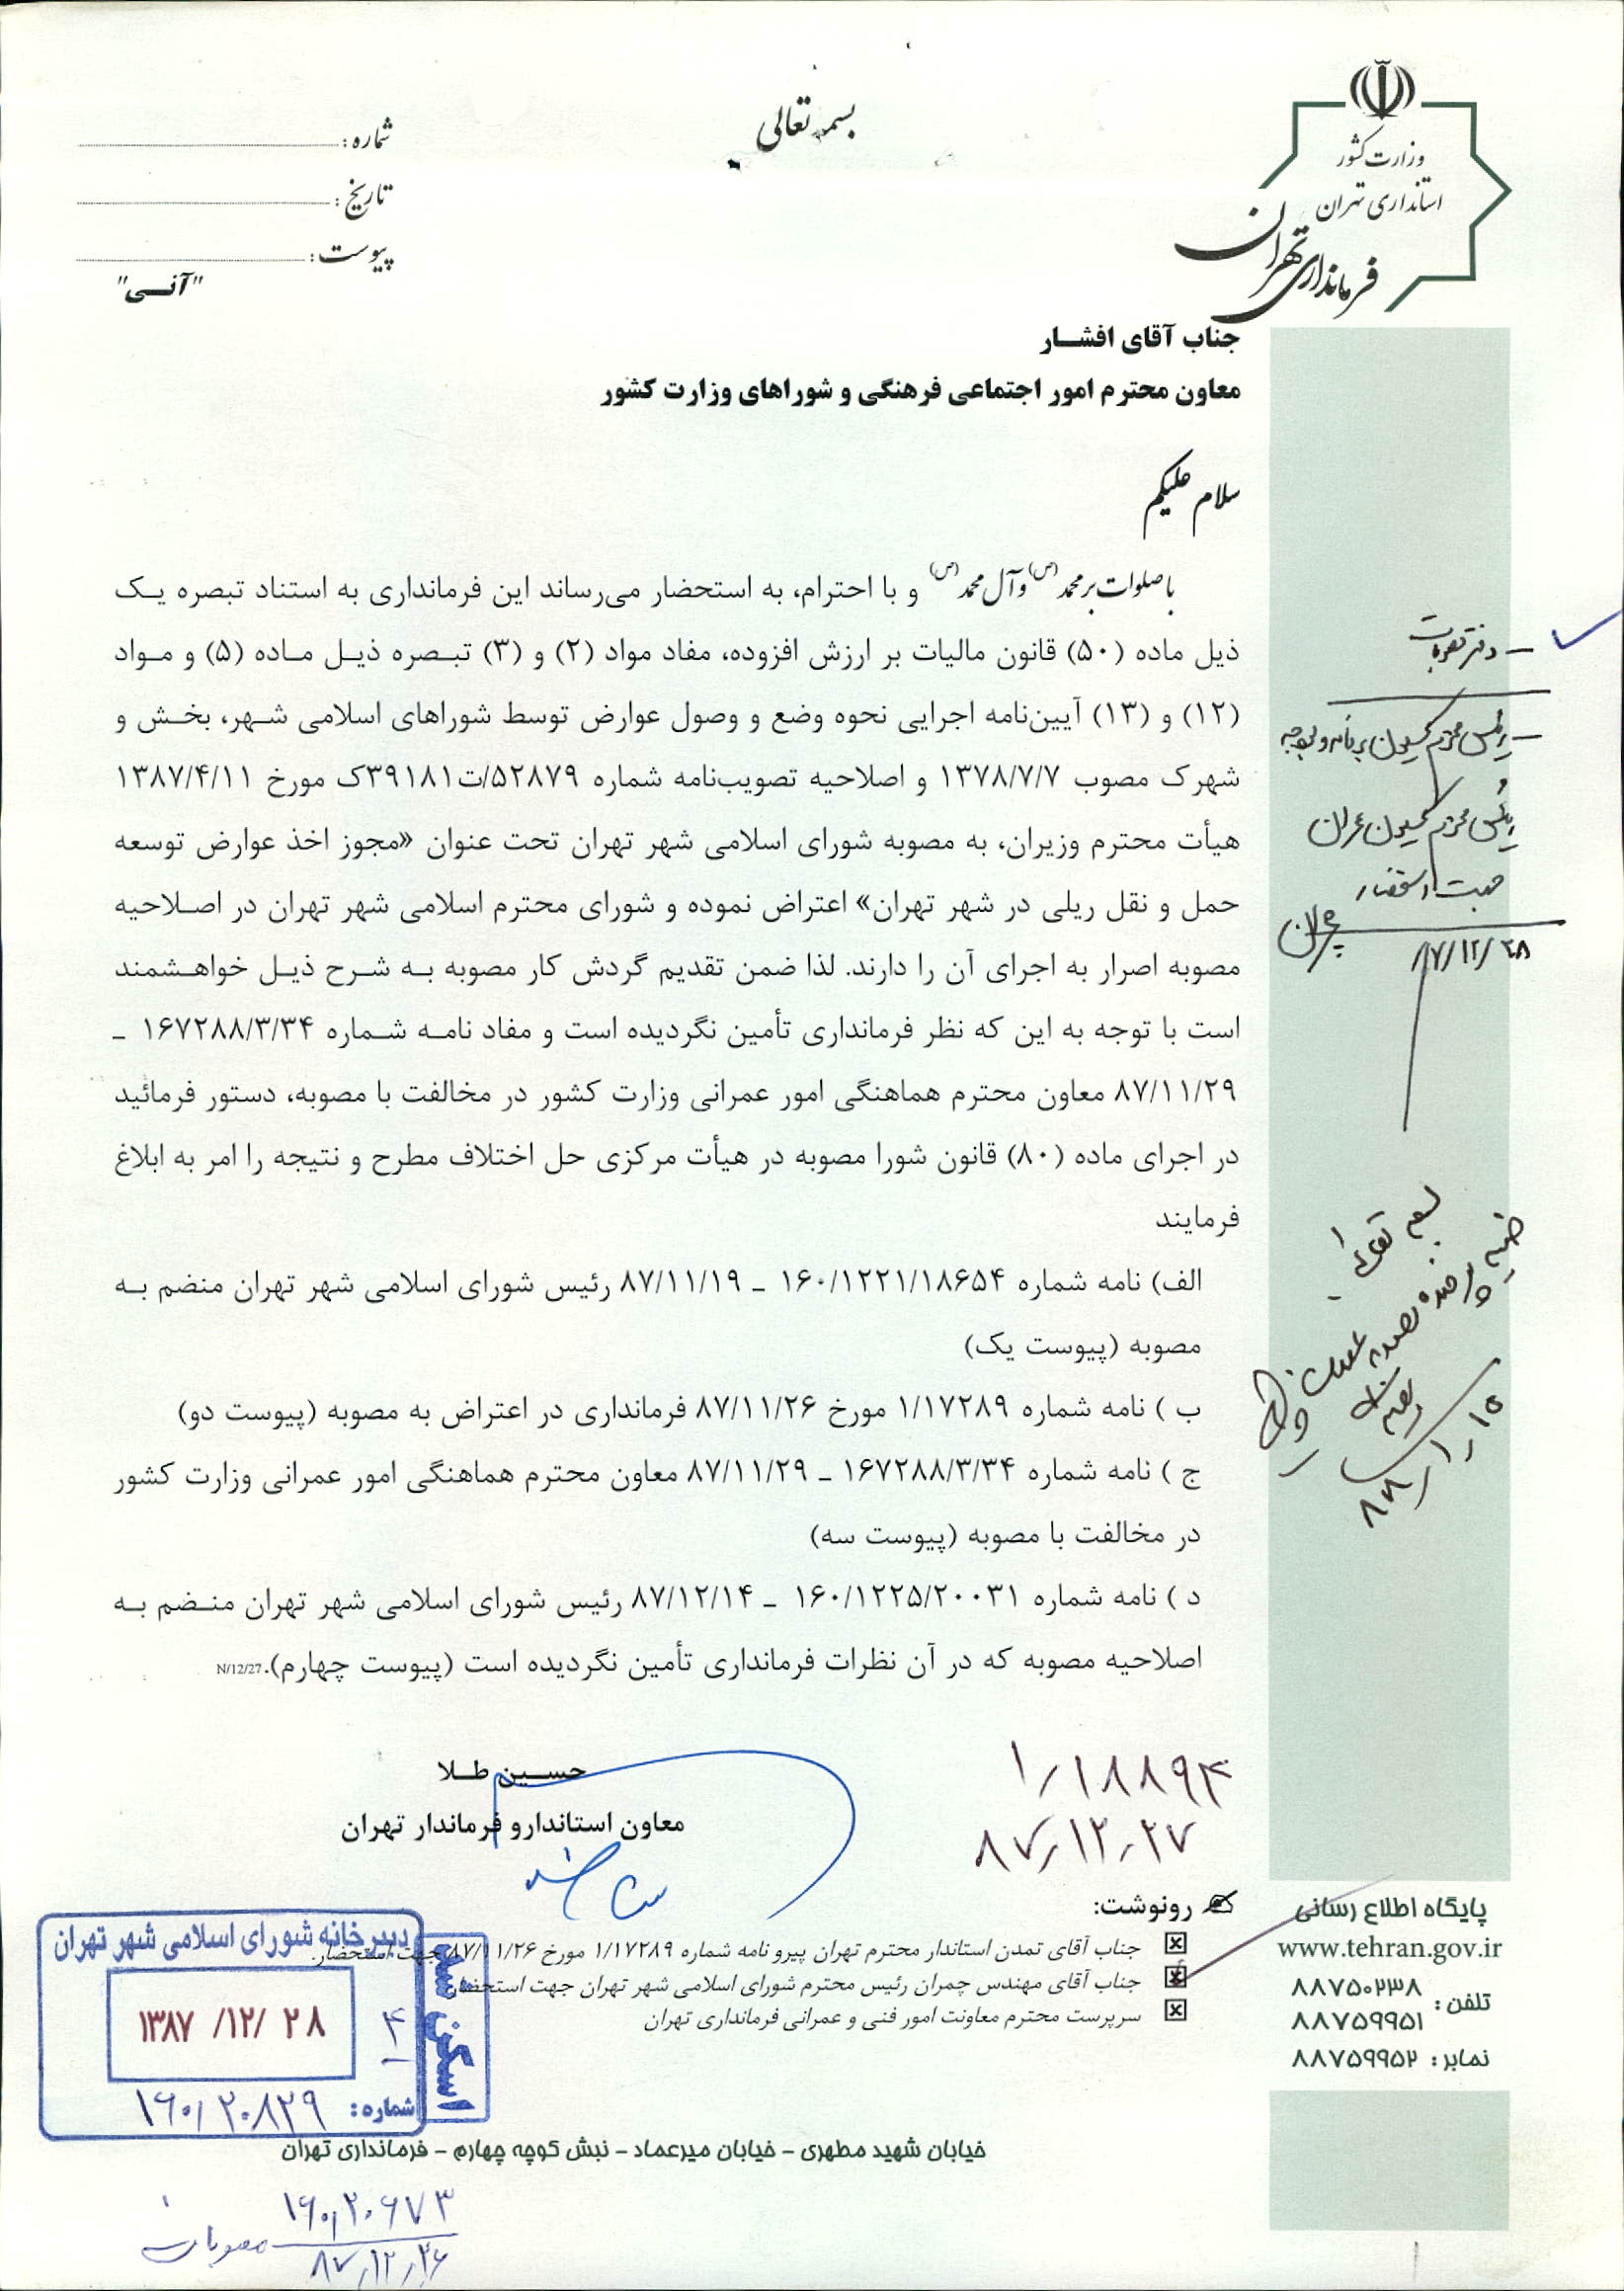 بسمه تعالی
وزارت کشور
استانداری تهران
فرمانداری تهران
شماره:
تاریخ:
پیوست:
"آنـــی"
جناب آقای افشــار
معاون محترم امور اجتماعی فرهنگی و شوراهای وزارت کشور
سلام علیکم
با صلوات بر محمد (ص) و آل محمد (ص) و با احترام، به استحضار می‌رساند این فرمانداری به استناد تبصره یک
ذیل ماده (۵۰) قانون مالیات بر ارزش افزوده، مفاد مواد (۲) و (۳) تبصره ذیل ماده (۵) و مواد
(۱۲) و (۱۳) آیین‌نامه اجرایی نحوه وضع و وصول عوارض توسط شوراهای اسلامی شهر، بخش و
شهرک مصوب ۱۳۷۸/۷/۷ و اصلاحیه تصویب‌نامه شماره ۵۲۸۷۹/ت۳۹۱۸۱ک مورخ ۱۳۸۷/۴/۱۱
هیأت محترم وزیران، به مصوبه شورای اسلامی شهر تهران تحت عنوان «مجوز اخذ عوارض توسعه
حمل و نقل ریلی در شهر تهران» اعتراض نموده و شورای محترم اسلامی شهر تهران در اصلاحیه
مصوبه اصرار به اجرای آن را دارند. لذا ضمن تقدیم گردش کار مصوبه به شرح ذیل خواهشمند
است با توجه به این که نظر فرمانداری تأمین نگردیده است و مفاد نامه شماره ۱۶۷۲۸۸/۳/۳۴ ـ
۸۷/۱۱/۲۹ معاون محترم هماهنگی امور عمرانی وزارت کشور در مخالفت با مصوبه، دستور فرمائید
در اجرای ماده (۸۰) قانون شورا مصوبه در هیأت مرکزی حل اختلاف مطرح و نتیجه را امر به ابلاغ
فرمایند
الف) نامه شماره ۱۶۰/۱۲۲۱/۱۸۶۵۴ ـ ۸۷/۱۱/۱۹ رئیس شورای اسلامی شهر تهران منضم به
مصوبه (پیوست یک)
ب ) نامه شماره ۱/۱۷۲۸۹ مورخ ۸۷/۱۱/۲۶ فرمانداری در اعتراض به مصوبه (پیوست دو)
ج ) نامه شماره ۱۶۷۲۸۸/۳/۳۴ ـ ۸۷/۱۱/۲۹ معاون محترم هماهنگی امور عمرانی وزارت کشور
در مخالفت با مصوبه (پیوست سه)
د ) نامه شماره ۱۶۰/۱۲۲۵/۲۰۰۳۱ ـ ۸۷/۱۲/۱۴ رئیس شورای اسلامی شهر تهران منضم به
اصلاحیه مصوبه که در آن نظرات فرمانداری تأمین نگردیده است (پیوست چهارم).N/12/27
حســین طــلا
معاون استاندارو فرماندار تهران
۱/۱۸۸۹۴
۸۷/۱۲/۲۷
رونوشت:
جناب آقای تمدن استاندار محترم تهران پیرو نامه شماره ۱/۱۷۲۸۹ مورخ ۸۷/۱۱/۲۶ جهت استحضار.
جناب آقای مهندس چمران رئیس محترم شورای اسلامی شهر تهران جهت استحضار
سرپرست محترم معاونت امور فنی و عمرانی فرمانداری تهران
دبیرخانه شورای اسلامی شهر تهران
۱۳۸۷ /۱۲/ ۲۸
۴
شماره: ۱۶۰/۲۰۸۲۹
اسکن شد
خیابان شهید مطهری - خیابان میرعماد - نبش کوچه چهارم - فرمانداری تهران
۱۶۰/۲۰۶۷۳
۸۷/۱۲/۲۶
مصوبات
- دفتر مصوبات
- رئیس محترم کمیسیون برنامه و بودجه
رئیس محترم کمیسیون عمران
جهت استحضار
چمران
۸۷/۱۲/۲۸
بسمه تعالی
ضمیمه پرونده مصوبه
۸۸/۱/۱۵
پایگاه اطلاع رسانی
www.tehran.gov.ir
تلفن: ۸۸۷۵۰۲۳۸
۸۸۷۵۹۹۵۱
نمابر: ۸۸۷۵۹۹۵۲